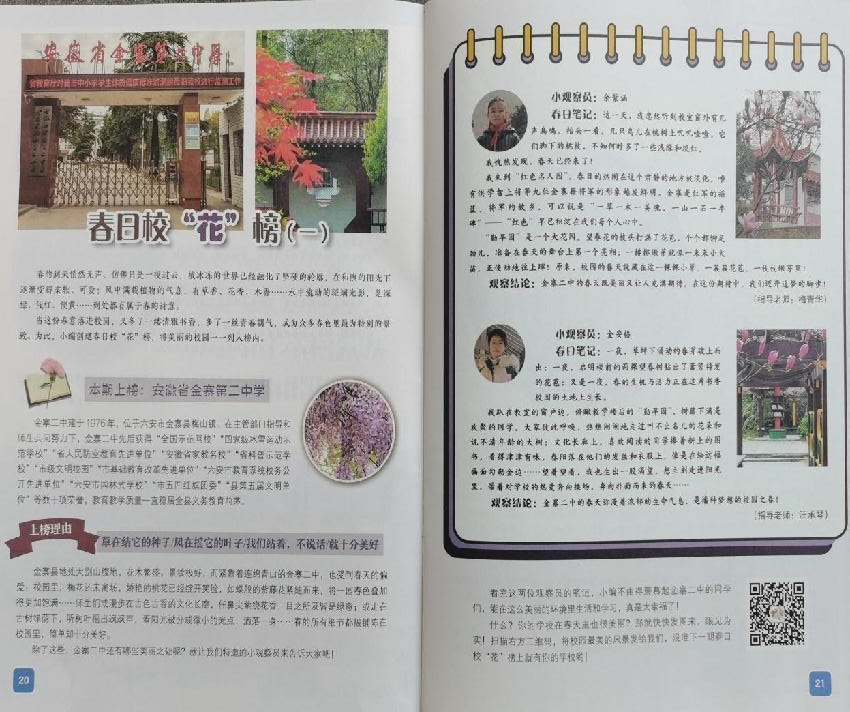 安徽省金寨第二中学
春日校“花”榜(一)
春的到来悄然无声，仿佛只是一夜过去，被冰冻的世界已经融化了坚硬的轮廓，在和煦的阳光下
逐渐变得柔软、可爱；风中满载植物的气息，有草香、花香、木香……水中流动的斑斓光影，是深
绿、浅红、靛黄……到处都有属于春的诗意。
当这份春意落进校园，又多了一缕清雅书香，多了一丝青春朝气，成为众多春色里最为特别的景
致。为此，小编创建春日校“花”榜，将美丽的校园一一列入榜内。
本期上榜：安徽省金寨第二中学
金寨二中建于1976年，位于六安市金寨县梅山镇。在主管部门指导和
师生共同努力下，金寨二中先后获得“全国示范司校”“国家级冰雪运动示
范学校”“省人民防空教育先进单位”“安徽省家教名校”“省科普示范学
校”“市级文明校园”“市基础教育改革先进单位”“六安市教育系统校务公
开先进单位”“六安市园林式学校”“市五四红旗团委”“县第五届文明单
位”等数十项荣誉，教育教学质量一直稳居金县义务教育前茅。
上榜理由
草在结它的种子/风在摇它的叶子/我们站着，不说话/就十分美好
金寨县地处大别山腹地，花木繁茂，景致极好。而紧靠着连绵青山的金寨二中，也受到春天的偏
爱。校园里，梅花还未离场，娇艳的桃花已经绽开笑脸，如蝶般的紫藤花紧随而来，将一园春色叠加
得更加饱满……师生们或漫步在古色古香的文化长廊，任鼻尖萦绕花香，目之所及皆是绿意；或走在
古树绿荫下，听树叶摇出飒飒声，看阳光被分成微小的光点，洒落一身……春的所有细节都被铺陈在
校园里，简单却十分美好。
除了这些，金寨二中还有哪些美丽之处呢？就让我们特邀的小观察员来告诉大家吧！
20
小观察员：余紫涵
春日笔记：这一天，我忽然听到教室窗外有几
声鸟鸣，抬头一看，几只鸟儿在桃树上叽叽喳喳，它
们脚下的桃枝，不知何时多了一些浅绿和淡红。
我恍然发现，春天已经来了！
我来到“红色名人园”，春日的烘闹在这个背静的地方被淡化，唯
有供学暂上将等九位金寨籍将军的形象愈发鲜明。金寨是红军的摇
篮、将军的故乡，可以说是“一草一木一英魂，一山一石一丰
碑”——“红色”早已积淀在我们每个人心中。
“勤草园”是一个大花园，望春花的枝头打满了花苞，个个都铆足
劲儿，准备在春天的舞台上第一个亮相；一排排嫩芽就像一朵朵小火
苗，正使劲地往上蹿！原来，校园的春天就藏在这一棵棵小草、一朵朵花苞、一枝枝柳芽里！
观察结论：金寨二中的春天既美丽又让人充满期待，在这份期待中，我们迎开追梦的脚步！
（指导老师：梅蕾华）
小观察员：金安格
春日笔记：一夜，草坪下涌动的春芽破土而
出；一夜，启明楼前的两棵望春树钻出了蓄势待发
的花苞；又是一夜，春的生机与活力正在这片书香
校园的土地上生长。
我趴在教室的窗户边，俯瞰教学楼后的“勤草园”，树荫下满是
欢聚的同学。大家按此呼唤，悠然闲闲地走过叫不出名儿的花朵和
说不清年龄的大树；文化长廊上，喜欢阅读的同学捧着新上的图
书，看得津津有味，春阳落在他们的发丝和衣服上，像是在给这幅
偏面勾勒金边……望着望着，我也生出一股渴望，想立刻走进阳光
里，带着对学校的热爱奔向操场，奔向扑面而来的春天……
观察结论：金寨二中的春天弥漫着浓郁的生命气息，是播种梦想的校园之春！
（指导老师：汪承琴）
看完这两位观察员的笔记，小编不由得羡慕起金寨二中的同学
们，能在这么美丽的环境里生活和学习，真是太幸福了！
什么？你的学校在春天里也很美丽？那就快快发图来，眼见为
实！扫描右方二维码，将校园最美的风景发给我们，没准下一期春日
校“花”榜上就有你的学校哟！
21